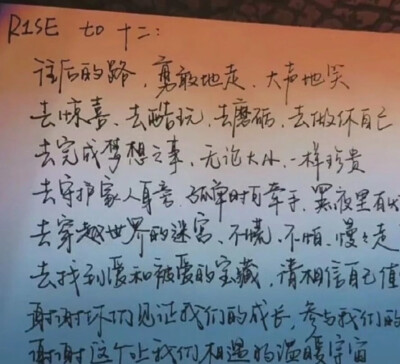 RISE to 十二:
往后的路,勇敢地走,大声地笑
去惊喜、去酷玩、去磨砺、去做你自己
去完成梦想之事,无论大小,一样珍贵
去守护家人身旁、孤单时可牵手,黑夜里有
去穿越世界的迷宫、不慌、不怕、慢慢走
去找到爱和被爱的宝藏,请相信自己值
谢谢你们见证我们的成长,参与我们的
谢谢这个让我们相遇的温暖宇宙